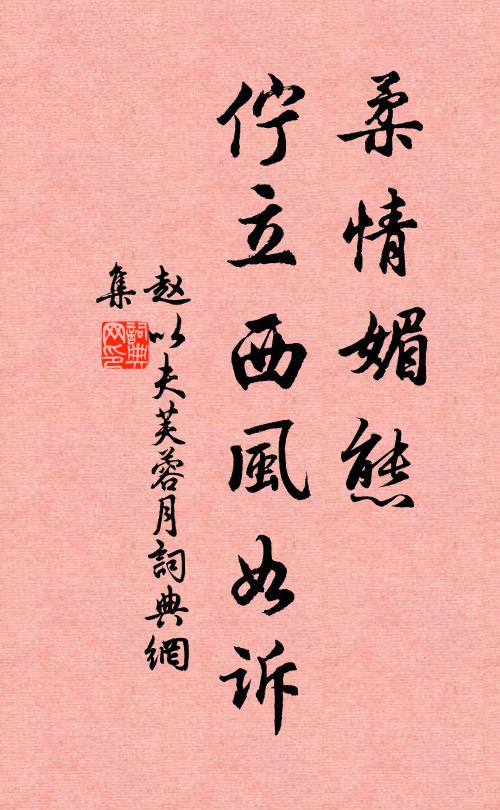 柔情媚態
佇立西風如訴
赵以夫芙蓉月詞典網
集
詞典網印